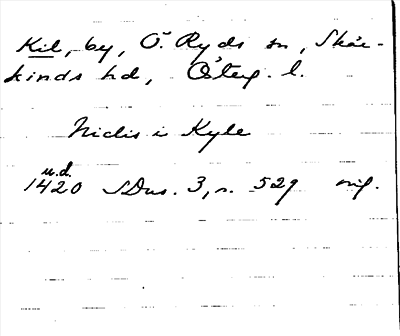 Kil, by, Ö. Ryds sn, Skär-
kinds hd, Österg. l.
Niclis i Kyle
u.d.
1420 SDns. 3, s. 529 orig.